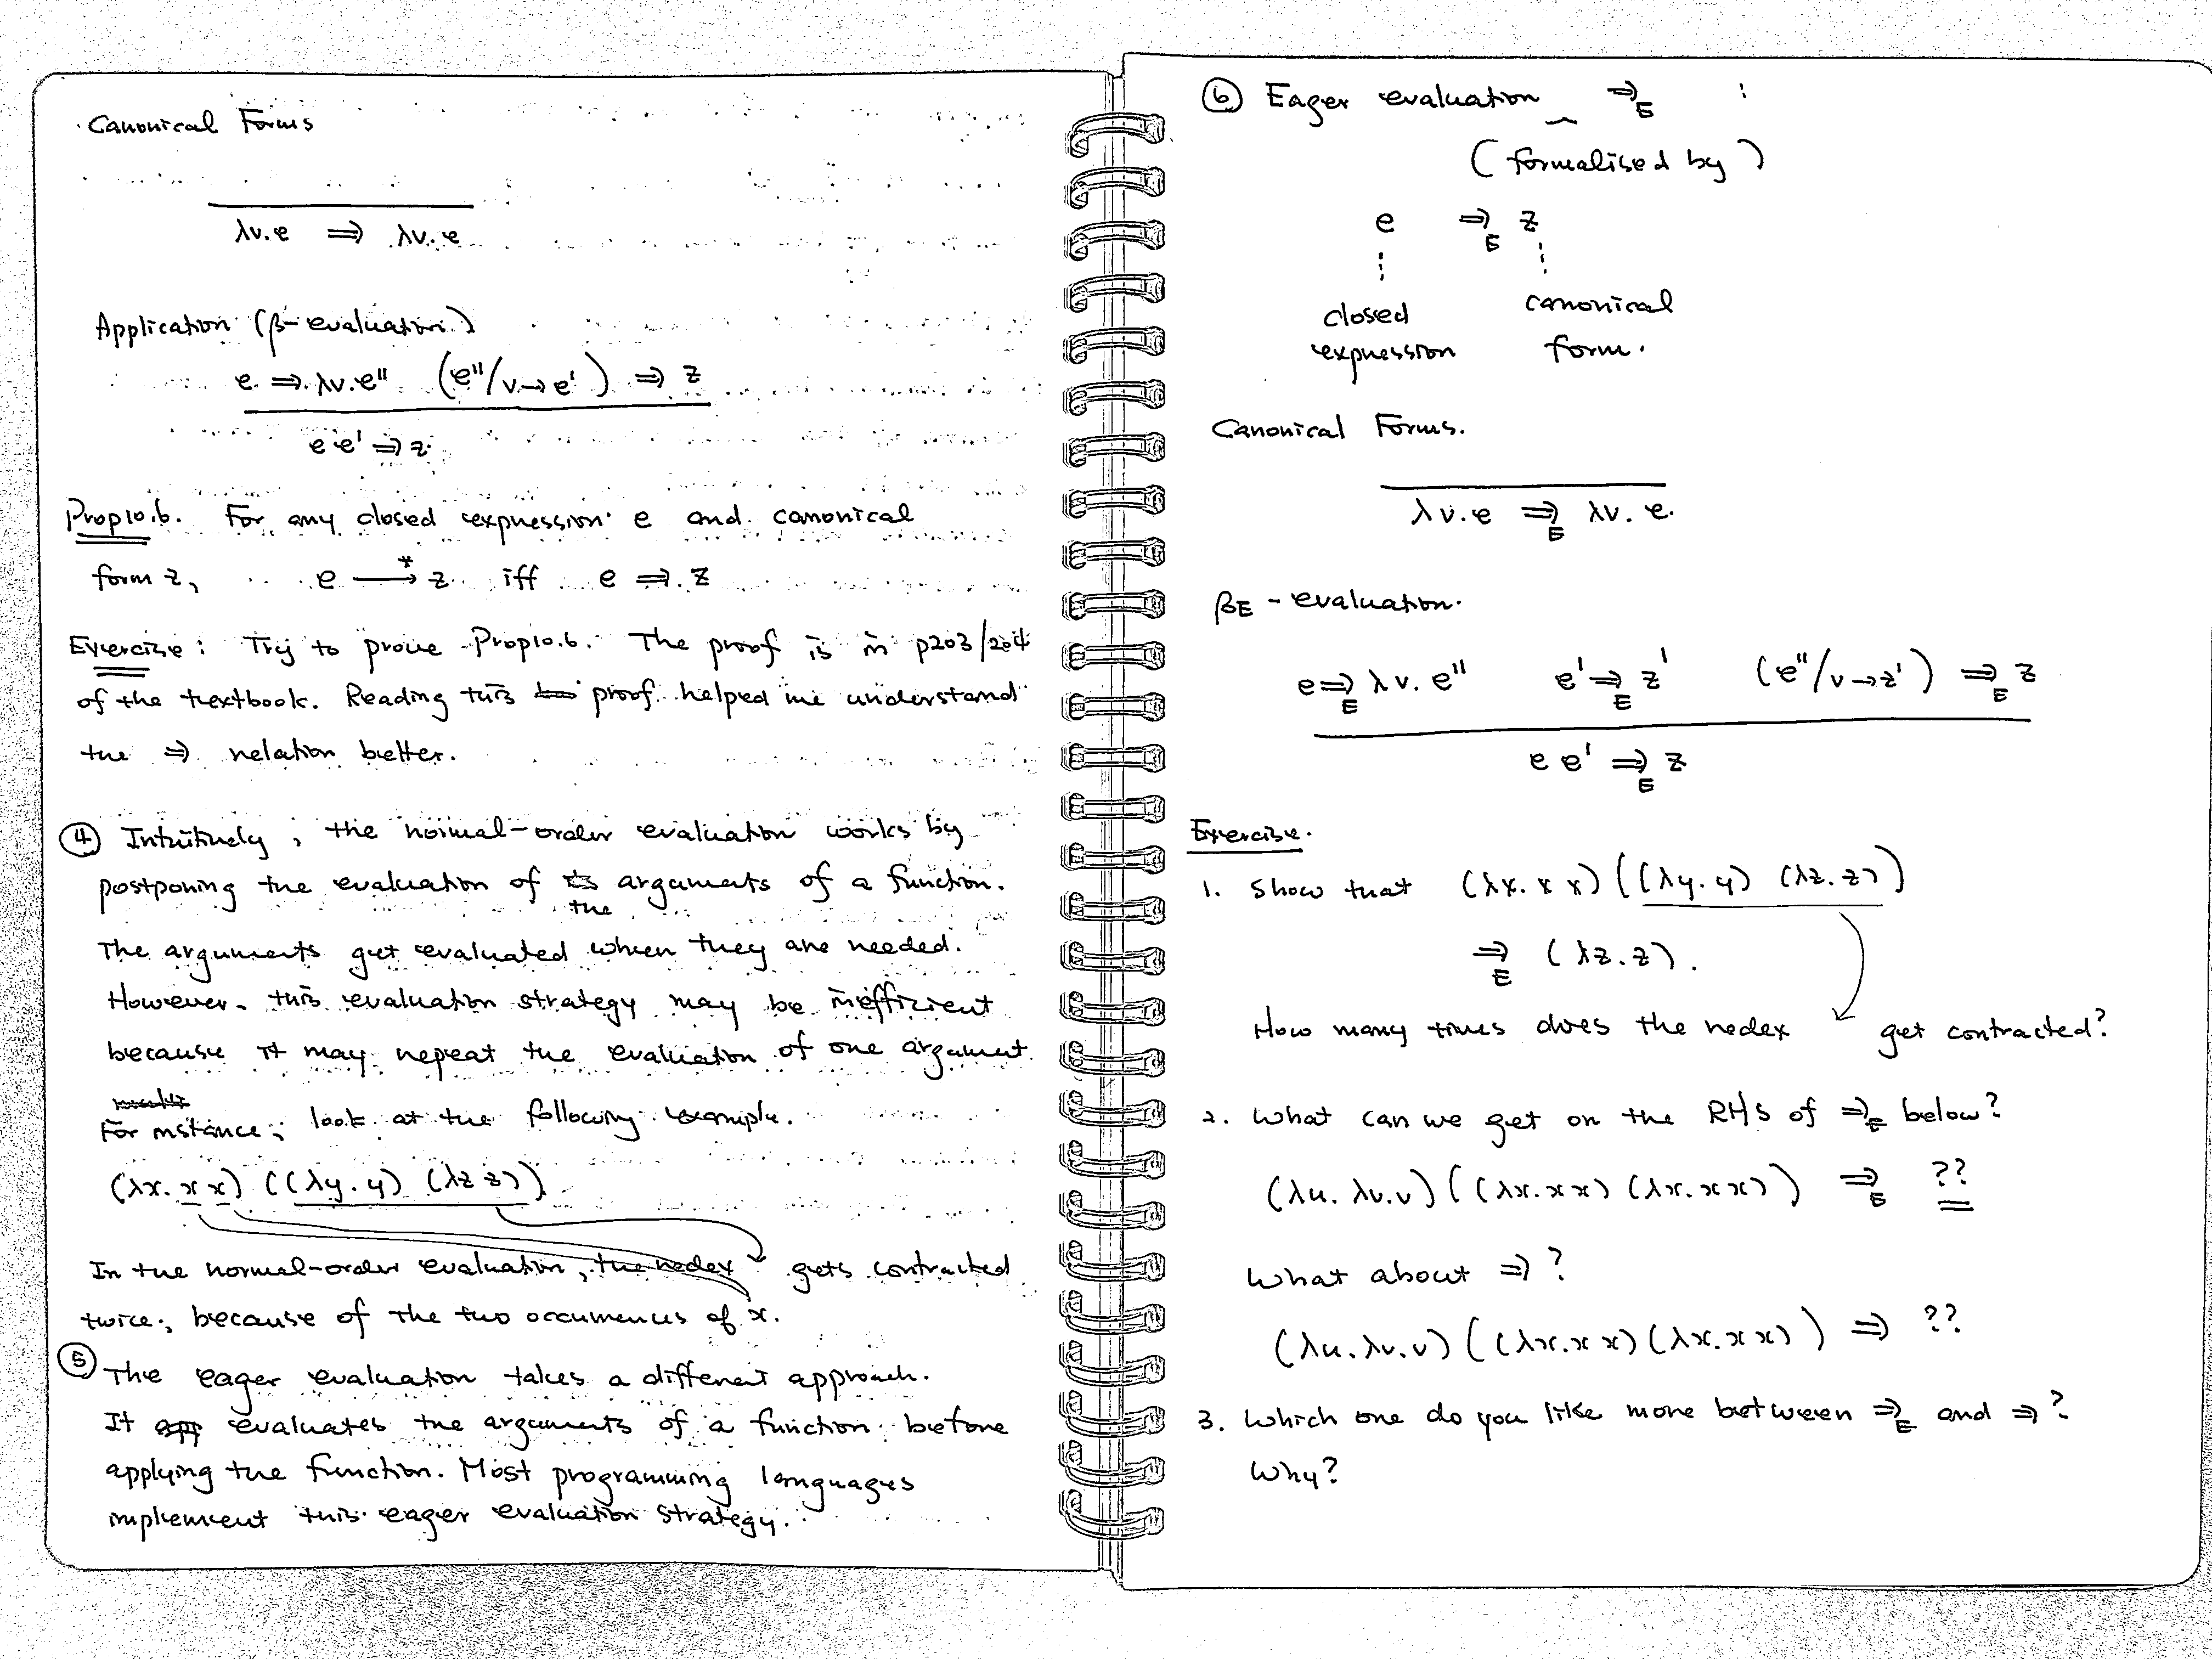 Canonical Forms
λv.e ⇒ λv.e
Application (β-evaluation.)
e ⇒ λv.e'' (e''/v→e') ⇒ z
e e' ⇒ z
Prop10.6. For any closed expression e and canonical
form z, e →* z iff e ⇒ z
Exercise: Try to prove Prop10.6. The proof is in p203/204
of the textbook. Reading this proof helped me understand
the ⇒ relation better.
④ Intuitively, the normal-order evaluation works by
postponing the evaluation of the arguments of a function.
The arguments get evaluated when they are needed.
However, this evaluation strategy may be inefficient
because it may repeat the evaluation of one argument.
For instance, look at the following example.
(λx. x x) ((λy. y) (λz z))
In the normal-order evaluation, the redex gets contracted
twice, because of the two occurrences of x.
⑤ The eager evaluation takes a different approach.
It evaluates the arguments of a function before
applying the function. Most programming languages
implement this eager evaluation strategy.
⑥ Eager evaluation ⇒E :
(formalised by)
e ⇒E z
closed canonical
expression form.
Canonical Forms.
λv.e ⇒E λv.e.
βE - evaluation.
e ⇒E λv. e'' e' ⇒E z' (e''/v→z') ⇒E z
e e' ⇒E z
Exercise.
1. Show that (λx. x x) ((λy. y) (λz. z))
⇒E (λz.z).
How many times does the redex get contracted?
2. What can we get on the RHS of ⇒E below?
(λu. λv.v) ((λx. x x) (λx. x x)) ⇒E ??
What about ⇒ ?
(λu. λv.v) ((λx. x x) (λx. x x)) ⇒ ??
3. Which one do you like more between ⇒E and ⇒ ?
Why?